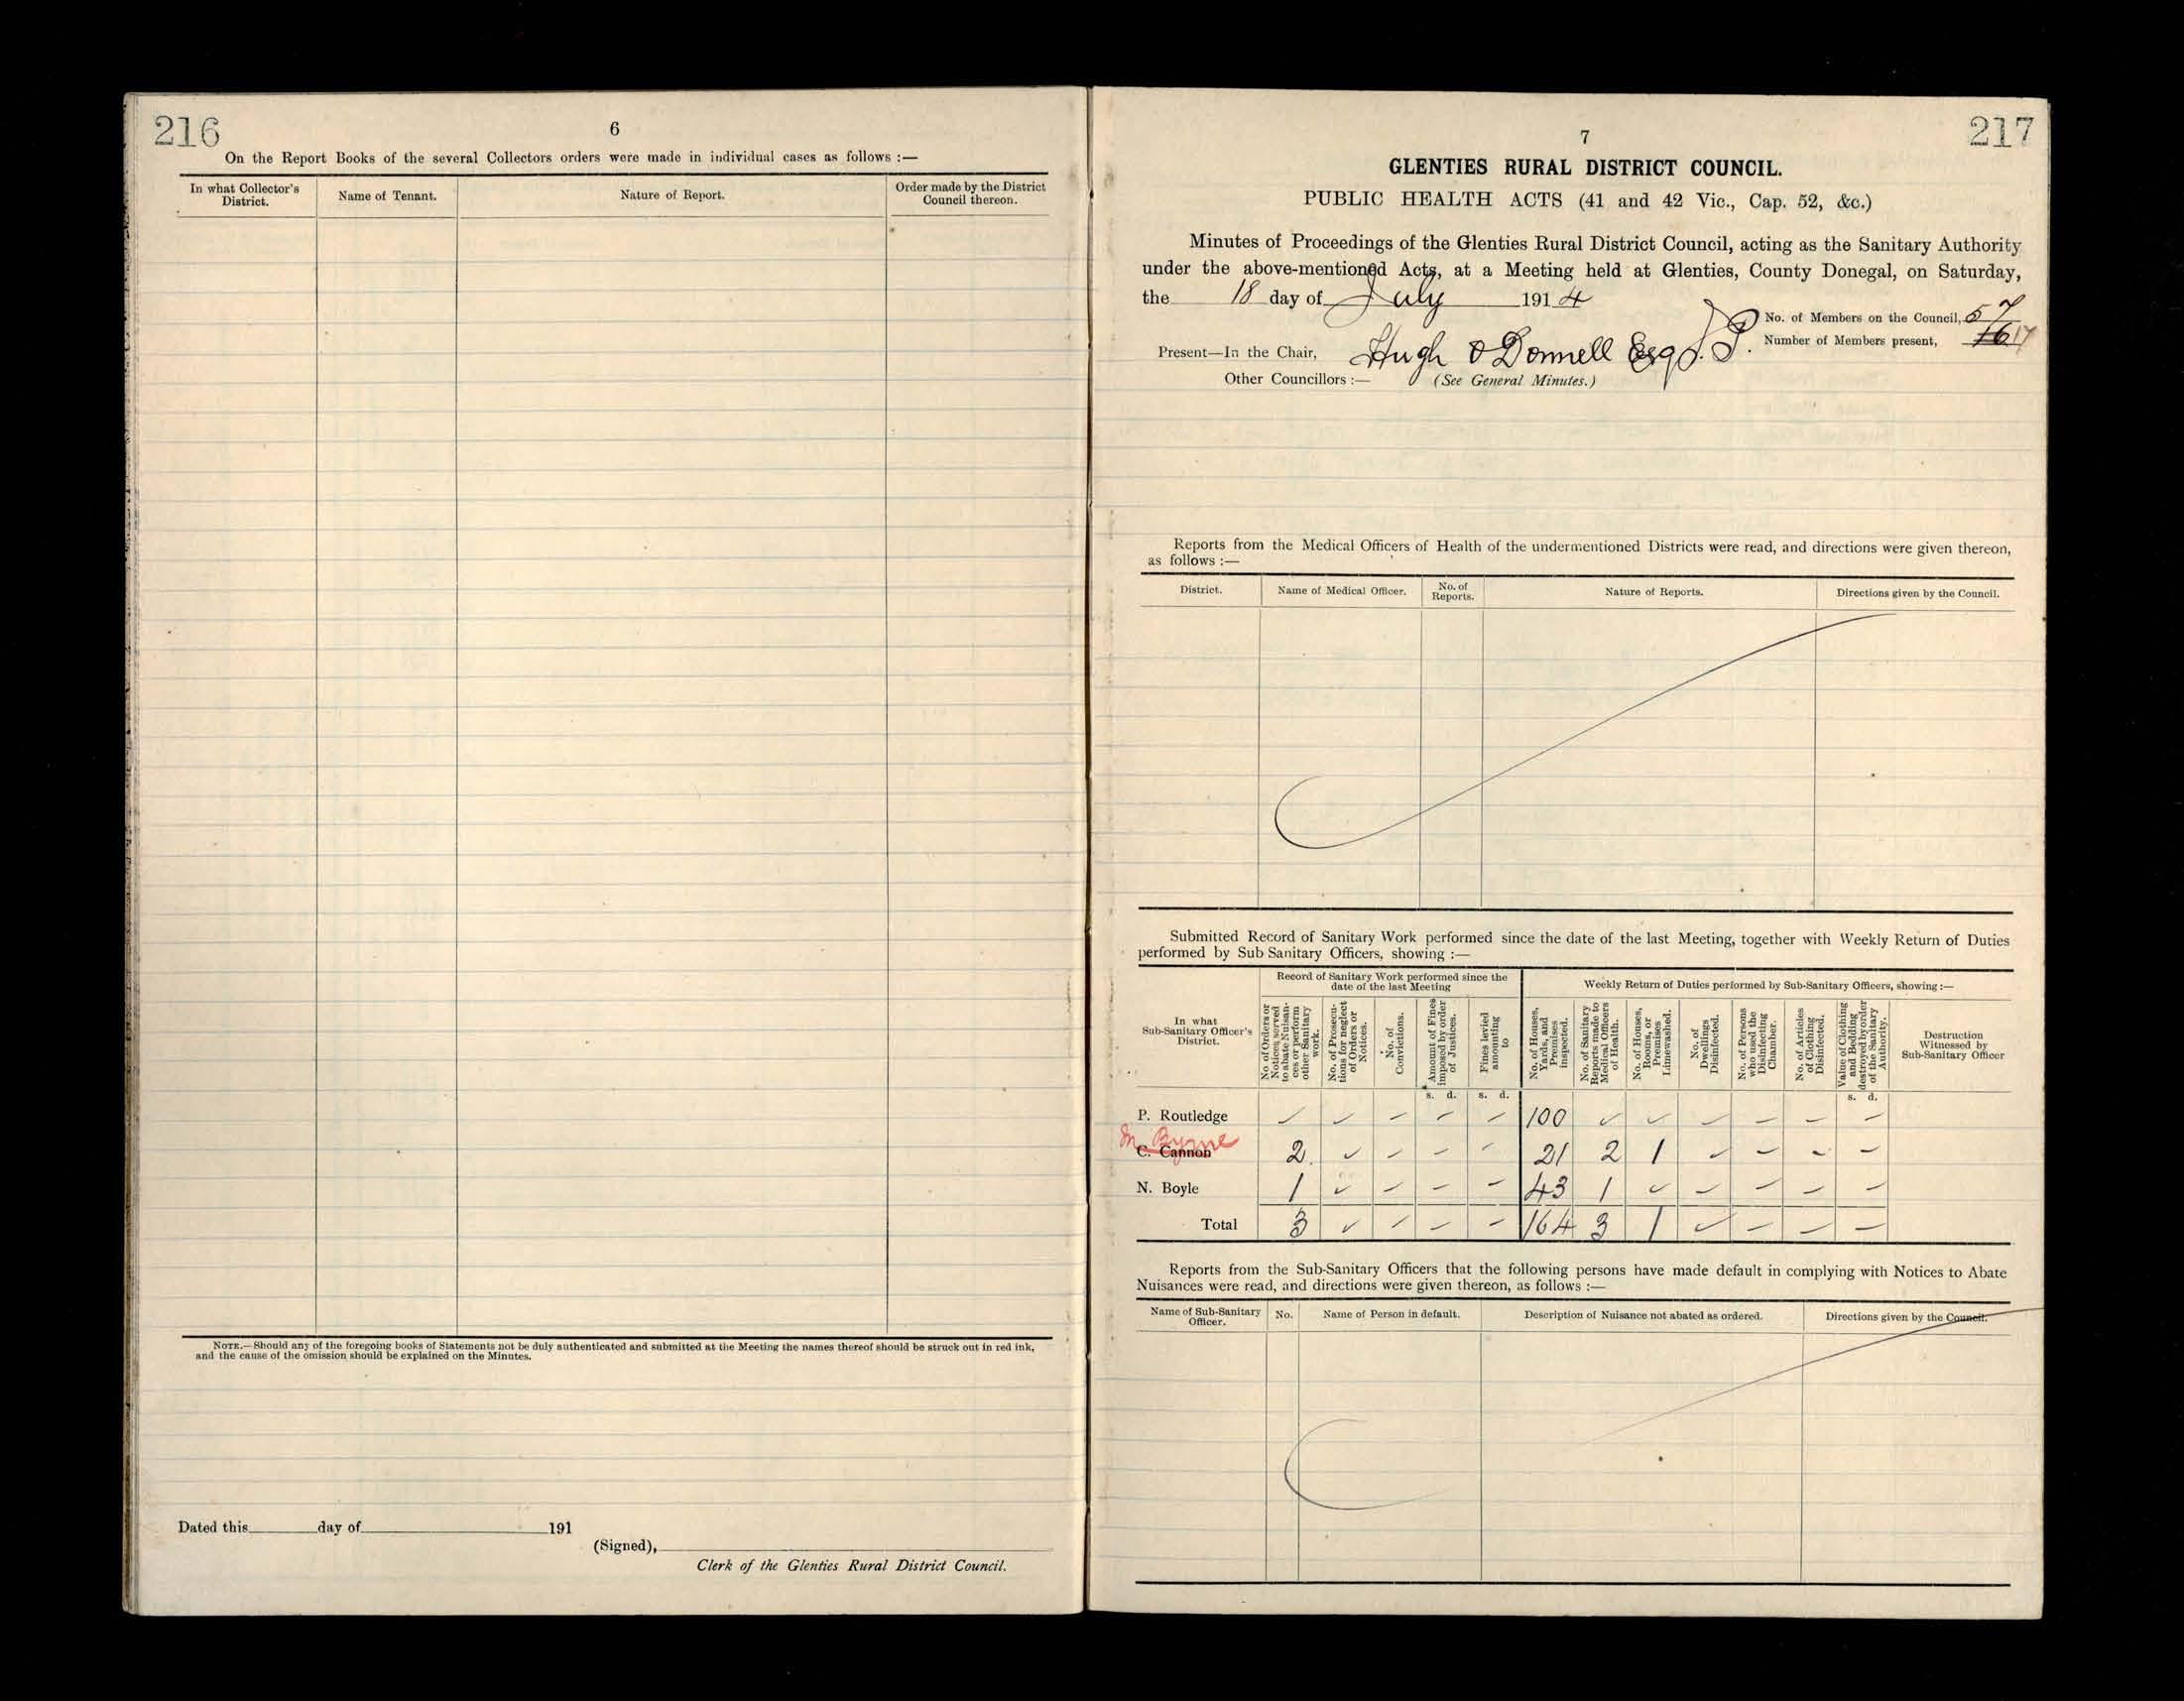 216
6
On the Report Books of the several Collectors orders were made in individual cases as follows :—
In what Collector's District.
Name of Tenant.
Nature of Report.
Order made by the District Council thereon.
NOTE.—Should any of the foregoing books of Statements not be duly authenticated and submitted at the Meeting the names thereof should be struck out in red ink,
and the cause of the omission should be explained on the Minutes.
Dated this day of 191
(Signed),
Clerk of the Glenties Rural District Council.
7
217
GLENTIES RURAL DISTRICT COUNCIL.
PUBLIC HEALTH ACTS (41 and 42 Vic., Cap. 52, &c.)
Minutes of Proceedings of the Glenties Rural District Council, acting as the Sanitary Authority
under the above-mentioned Acts, at a Meeting held at Glenties, County Donegal, on Saturday,
the 18 day of July 1914
No. of Members on the Council, 57
Present—In the Chair, Hugh O'Donnell Esq J.P.
Number of Members present, 16 17
Other Councillors :— (See General Minutes.)
Reports from the Medical Officers of Health of the undermentioned Districts were read, and directions were given thereon,
as follows :—
District.
Name of Medical Officer.
No. of Reports.
Nature of Reports.
Directions given by the Council.
Submitted Record of Sanitary Work performed since the date of the last Meeting, together with Weekly Return of Duties
performed by Sub Sanitary Officers, showing :—
Record of Sanitary Work performed since the
date of the last Meeting
Weekly Return of Duties performed by Sub-Sanitary Officers, showing :—
In what Sub-Sanitary Officer's District.
No of Orders or Notices served to abate Nuisances or perform other Sanitary work.
No. of Prosecutions for neglect of Orders or Notices.
No. of Convictions.
Amount of Fines imposed by order of Justices.
Fines levied amounting to
No. of Houses, Yards, and Premises inspected.
No. of Sanitary Reports made to Medical Officers of Health.
No. of Houses, Rooms, or Premises Limewashed.
No. of Dwellings Disinfected.
No. of Persons who used the Disinfecting Chamber.
No. of Articles of Clothing Disinfected.
Value of Clothing and Bedding destroyed by order of the Sanitary Authority.
Destruction Witnessed by Sub-Sanitary Officer
s. d. s. d. s. d.
P. Routledge 100
M. Byrne
C. Cannon 2 21 2 1
N. Boyle 1 43 1
Total 3 164 3 1
Reports from the Sub-Sanitary Officers that the following persons have made default in complying with Notices to Abate
Nuisances were read, and directions were given thereon, as follows :—
Name of Sub-Sanitary Officer.
No.
Name of Person in default.
Description of Nuisance not abated as ordered.
Directions given by the Council.